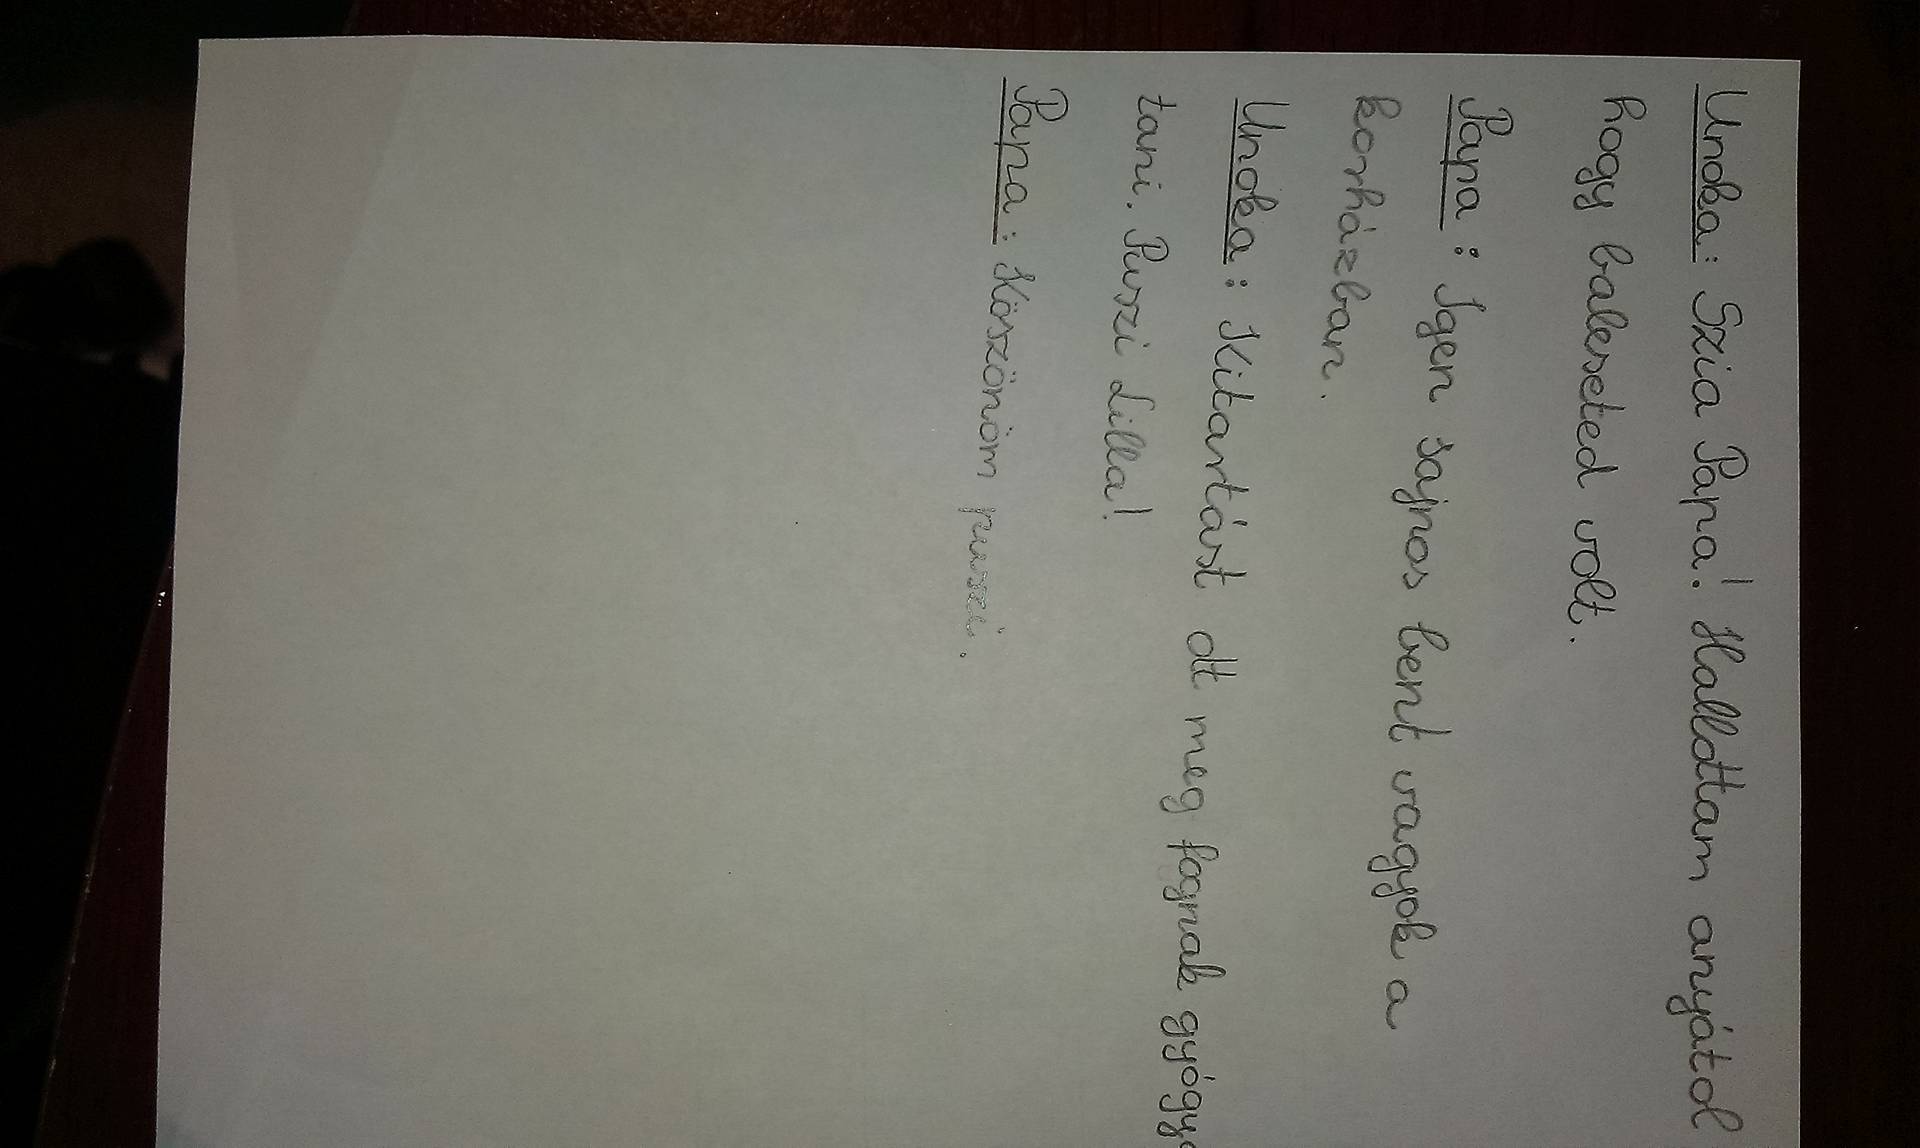 Unoka: Szia Papa! Hallottam anyától
hogy baleseted volt.
Papa: Igen sajnos bent vagyok a
korházban.
Unoka: Kitartást ott meg fognak gyógyí
tani. Puszi Lilla!
Papa: Köszönöm puszi.